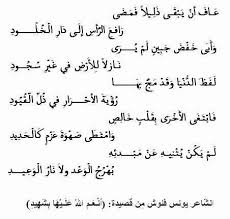 عَافَ أَنْ يَبْقَى ذَلِيلاً فَمَضَى
رَافِعَ الرَّأْسِ إِلَى نَارِ الْخُلُودِ
وَأَبَى خَفْضَ جَبِينٍ لَمْ يُرَى
نَازِلاً لِلْأَرْضِ فِي غَيْرِ سُجُودِ
لَفَظَ الدُّنْيَا وَقَدْ مَجَّ بِهَا
رُؤْيَةَ الْأَحْرَارِ فِي ذُلِّ الْقُيُودِ
فَابْتَغَى الْأُخْرَى بِقَلْبٍ خَالِصٍ
وَامْتَطَى صَهْوَةَ عَزْمٍ كَالْحَدِيدِ
لَمْ يَكُنْ يُثْنِيهِ عَنْ مَبْدَئِهِ
بُهْرُجُ الْوَعْدِ وَلاَ نَارُ الْوَعِيدِ
الشاعر يونس فنوش من قصيدة: (أَنْعَمَ اللهُ عَلَيْهَا بِشَهِيدِ)